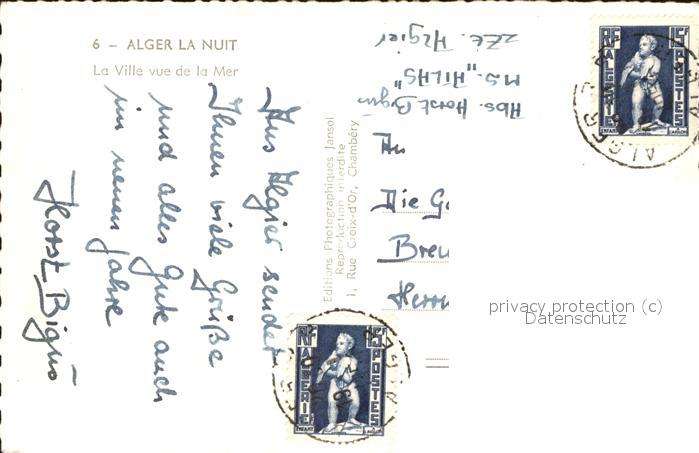 6 – ALGER LA NUIT
La Ville vue de la Mer
Aus Algier sendet
Ihnen viele Grüße
und alles Gute auch
im neuen Jahre
Horst Bigus
Editions Photographiques Jansol
Reproduction interdite
1, Rue Croix-d'Or, Chambéry
Abs. Horst Bigus
M.S. „HILAS"
zZt. Algier
An
Die G
Breu
Herrn
RF
ALGERIE
15F
POSTES
ALGER
RF
ALGERIE
15F
POSTES
privacy protection (c)
Datenschutz